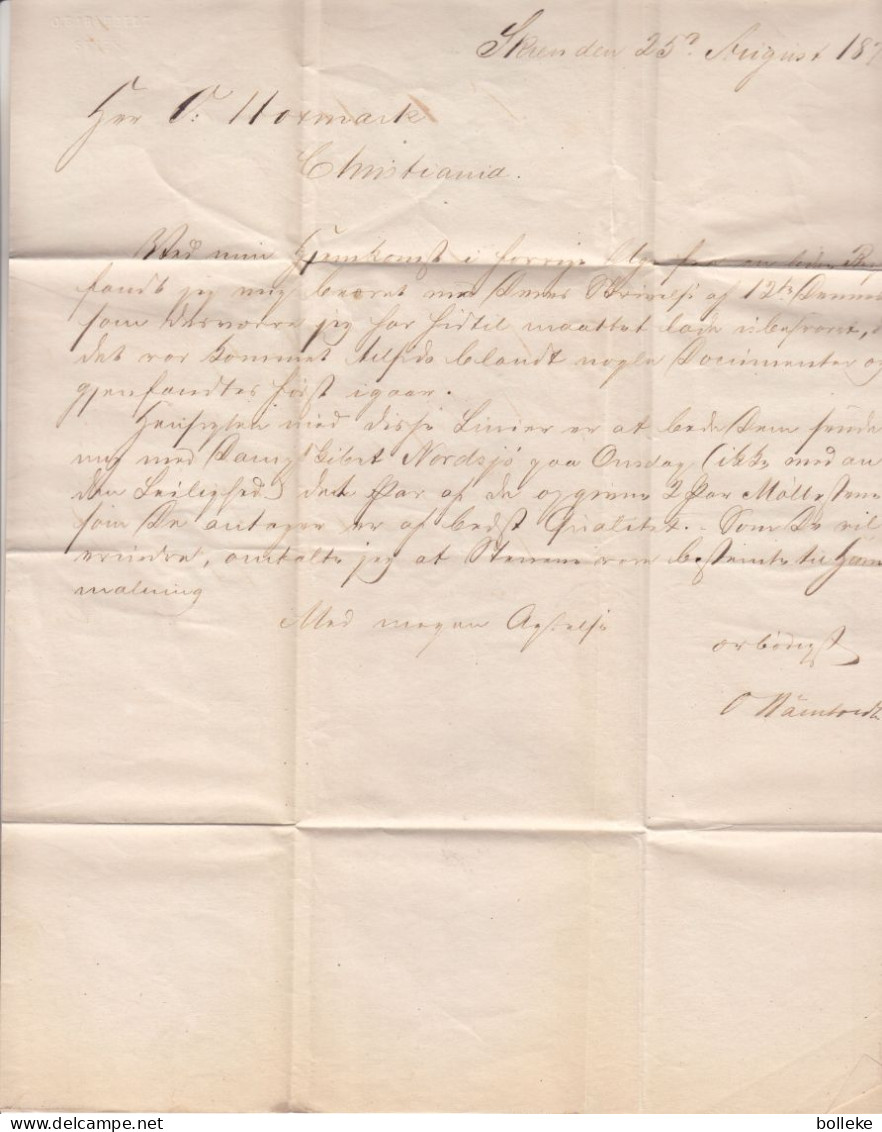 Skien den 25de August 187
Herr O: Hoxmark
Christiania.
Ved min Hjemkomst i forrige Uge fra en liden
fandt jeg mig beæret med Deres Skrivelse af 12te Dennes
som desværre jeg har hidtil maattet lade ubesvaret,
det var kommet tilside blandt nogle Documenter og
gjenfandtes først igaar.
Hensigten med disse Linier er at bede Dem sende
mig med Dampskibet Nordsjø paa Onsdag (ikke med an
den Leilighed) det Par af de opgivne 2 Par Møllestene
som De antager er af bedst Qvalitet. – Som De vil
erindre, omtalte jeg at Stenene vare bestemte til
malning
Med megen Agtelse
ærbødigst
O
bolleke